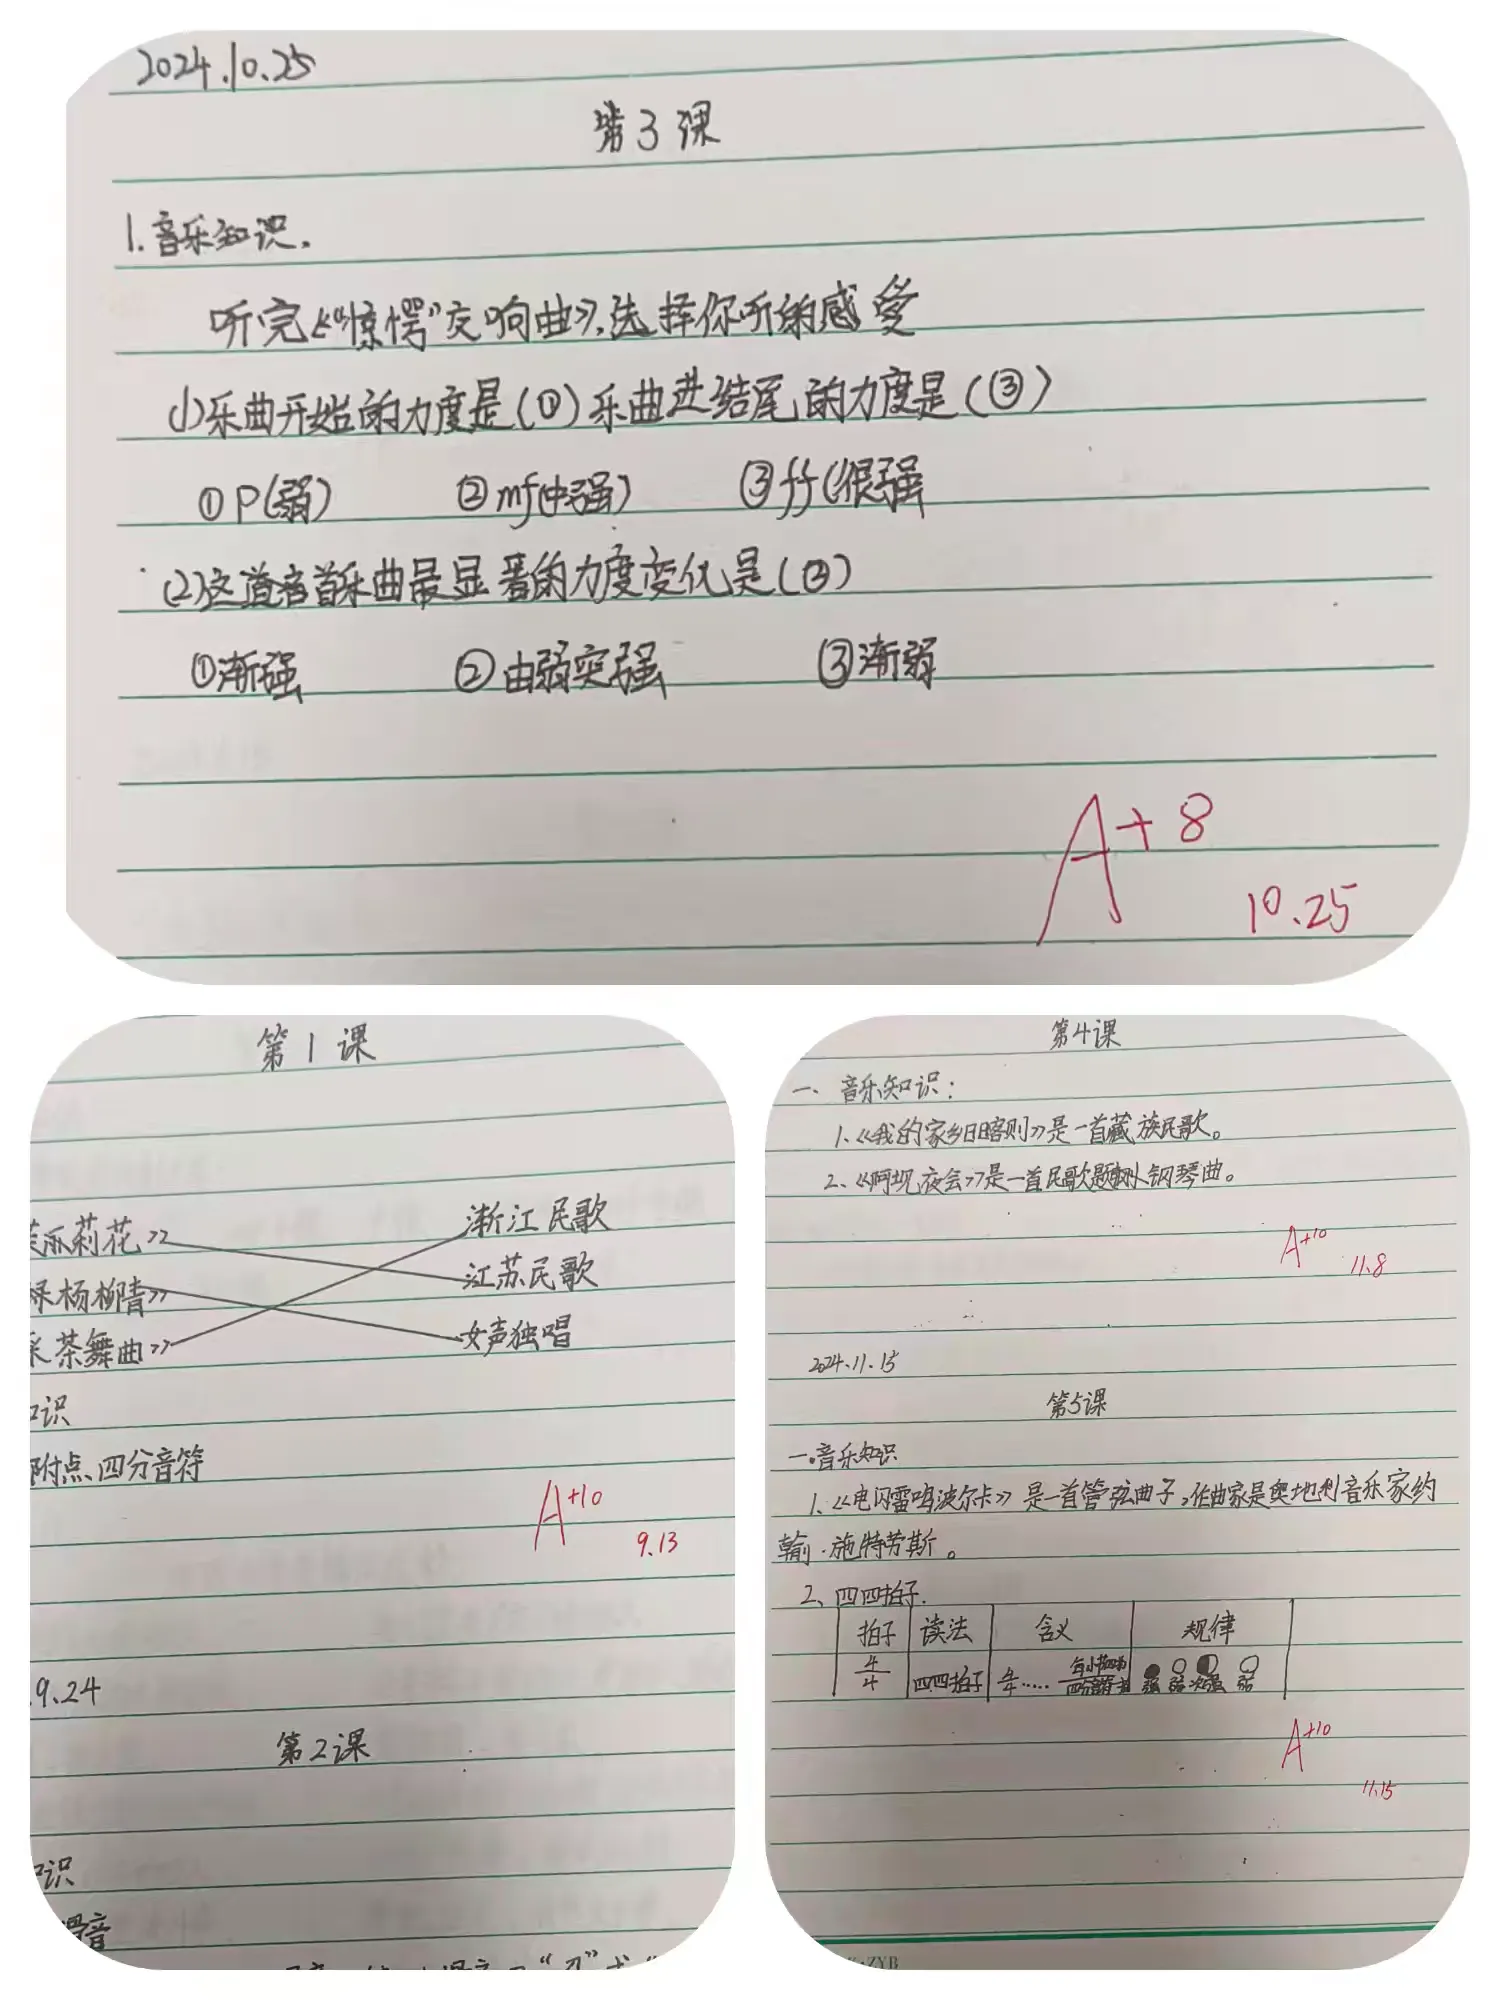 2024.10.25
第3课
1.音乐知识.
听完《"惊愕"交响曲》,选择你听的感受
(1)乐曲开始的力度是(①)乐曲进结尾的力度是(③)
①P(弱) ②mf(中强) ③ff(很强
(2)这首乐曲最显著的力度变化是(②)
①渐强 ②由弱突强 ③渐弱
A+8
10.25
第1课
莉花》 浙江民歌
杨柳青》 江苏民歌
采茶舞曲》 女声独唱
识
附点四分音符
A+10
9.13
.9.24
第2课
识
音
第4课
一、音乐知识:
1.《我的家乡日喀则》是一首藏族民歌。
2、《阿坝夜会》是一首民歌题钢琴曲。
A+10
11.8
2024.11.15
第5课
一.音乐知识
1、《电闪雷鸣波尔卡》是一首管弦曲子,作曲家是奥地利音乐家约
翰·施特劳斯。
2、四四拍子.
拍子 读法 含义 规律
4/4 四四拍子 每小节四拍 强 弱 次强 弱
A+10
11.15
ZYB